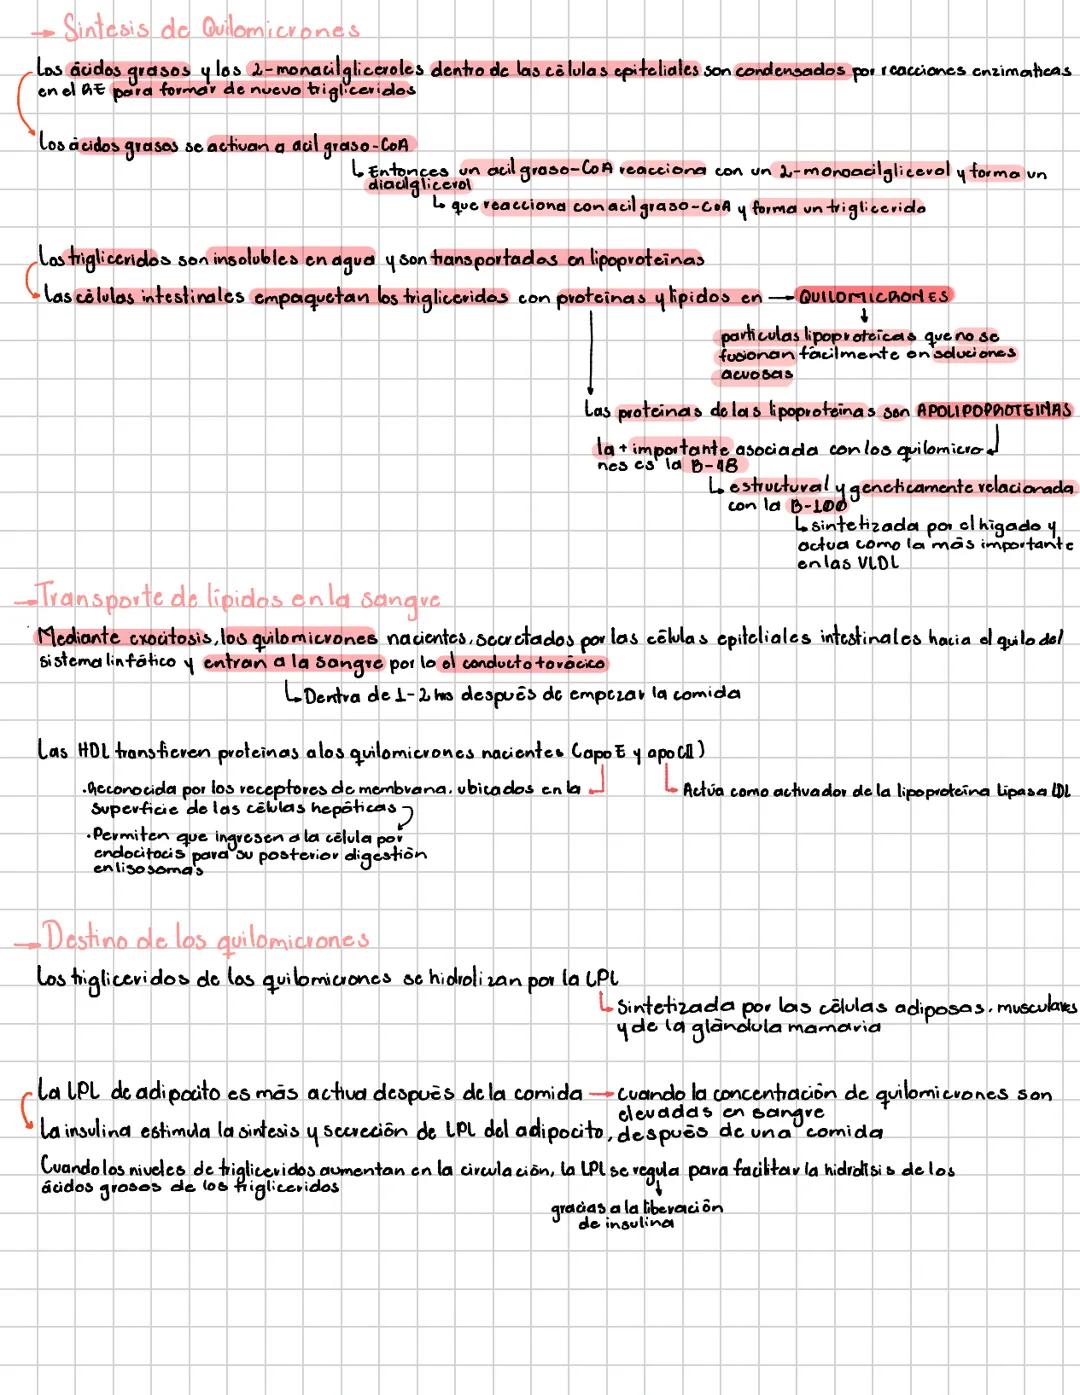 → Síntesis de Quilomicrones
Los ácidos grasos y los 2-monacilgliceroles dentro de las células epiteliales son condensados por reacciones enzimaticas
en el RE para formar de nuevo trigliceridos
Los ácidos grasos se activan a acil graso-CoA
↳ Entonces un acil graso-CoA reacciona con un 2-monoacilglicerol y forma un
diacilglicerol
↳ que reacciona con acil graso-CoA y forma un triglicerido
Los trigliceridos son insolubles en agua y son transportados en lipoproteínas
Las células intestinales empaquetan los trigliceridos con proteínas y lípidos en → QUILOMICRONES
partículas lipoproteícas que no se
fusionan fácilmente en soluciones
acuosas
Las proteínas de las lipoproteínas son APOLIPOPROTEINAS
la + importante asociada con los quilomicro
nes es la B-48
↳ estructural y geneticamente relacionada
con la B-100
↳ sintetizada por el hígado y
actua como la más importante
en las VLDL
→ Transporte de lípidos en la sangre
Mediante exocitosis, los quilomicrones nacientes, secretados por las células epiteliales intestinales hacia el quilo del
sistema linfático y entran a la sangre por lo el conducto torácico
↳ Dentra de 1-2 hrs después de empezar la comida
Las HDL transfieren proteínas a los quilomicrones nacientes (apo E y apo CII)
·Reconocida por los receptores de membrana, ubicados en la
↳ Actúa como activador de la lipoproteína Lipasa LDL
superficie de las células hepáticas
·Permiten que ingresen a la célula por
endocitocis para su posterior digestión
en lisosomas
→ Destino de los quilomicrones
Los trigliceridos de los quilomicrones se hidrolizan por la LPL
↳ Sintetizada por las células adiposas, musculares
y de la glándula mamaria
La LPL de adipocito es más activa después de la comida → Cuando la concentración de quilomicrones son
elevadas en sangre
La insulina estimula la síntesis y secreción de LPL del adipocito, después de una comida
Cuando los niveles de trigliceridos aumentan en la circulación, la LPL se regula para facilitar la hidrólisis de los
ácidos grasos de los trigliceridos
gracias a la liberación
de insulina